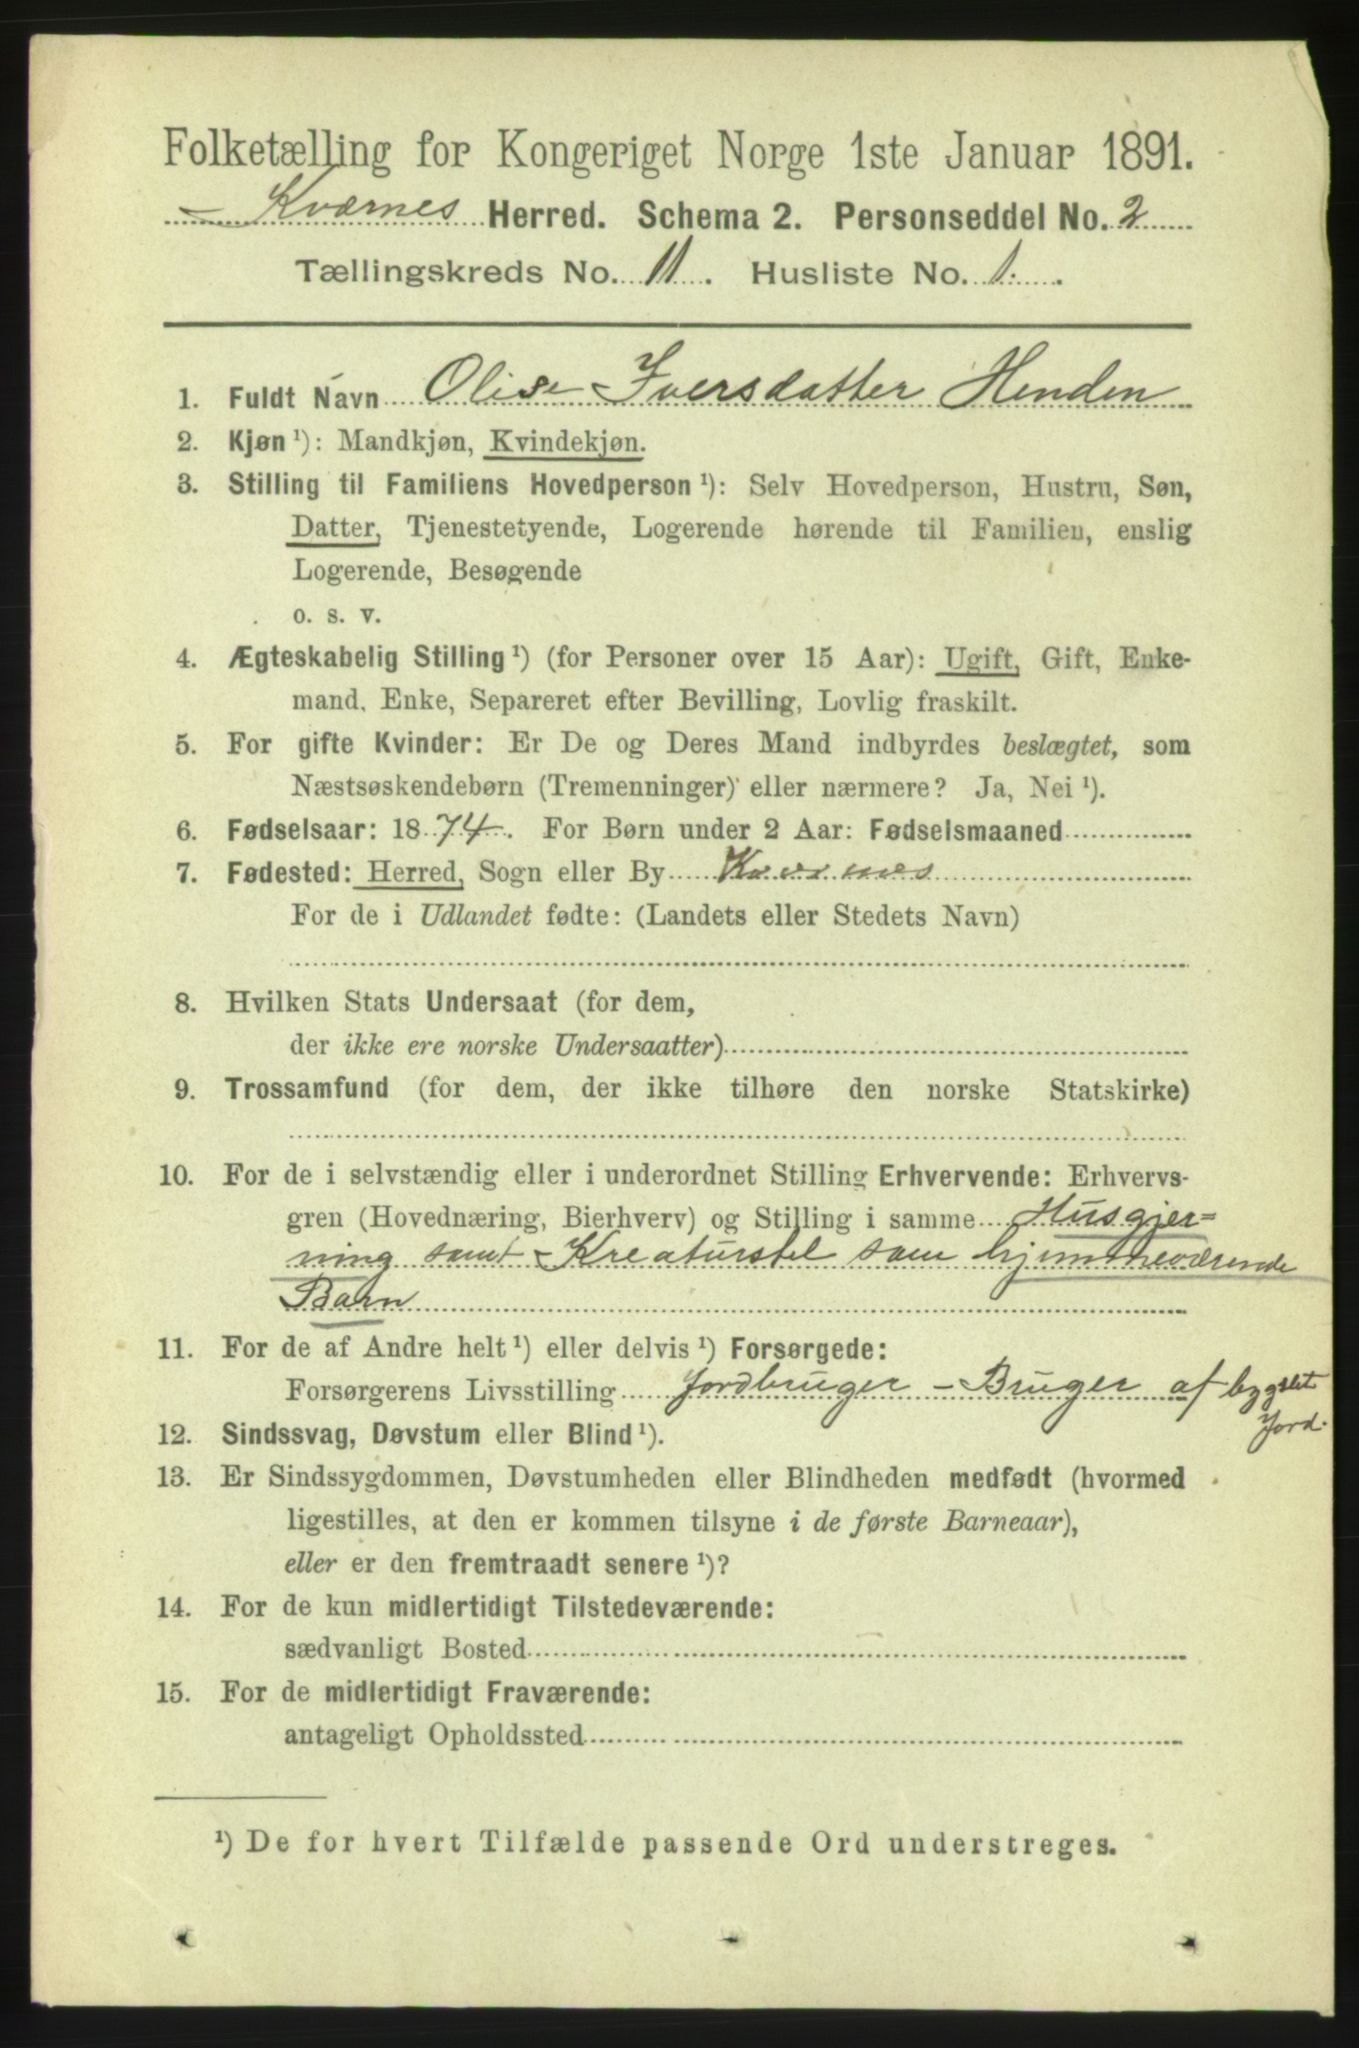 Folketælling for Kongeriget Norge 1ste Januar 1891.
Kværnes Herred. Schema 2. Personseddel No. 2
Tællingskreds No. 11. Husliste No. 1.
1. Fuldt Navn Olise Iversdatter Henden
2. Kjøn ¹): Mandkjøn, Kvindekjøn.
3. Stilling til Familiens Hovedperson ¹): Selv Hovedperson, Hustru, Søn,
Datter, Tjenestetyende, Logerende hørende til Familien, enslig
Logerende, Besøgende
o. s. v.
4. Ægteskabelig Stilling ¹) (for Personer over 15 Aar): Ugift, Gift, Enke-
mand, Enke, Separeret efter Bevilling, Lovlig fraskilt.
5. For gifte Kvinder: Er De og Deres Mand indbyrdes beslægtet, som
Næstsøskendebørn (Tremenninger) eller nærmere? Ja, Nei ¹).
6. Fødselsaar: 1874. For Børn under 2 Aar: Fødselsmaaned
7. Fødested: Herred, Sogn eller By Kværnes
For de i Udlandet fødte: (Landets eller Stedets Navn)
8. Hvilken Stats Undersaat (for dem,
der ikke ere norske Undersaatter)
9. Trossamfund (for dem, der ikke tilhøre den norske Statskirke)
10. For de i selvstændig eller i underordnet Stilling Erhvervende: Erhvervs-
gren (Hovednæring, Bierhverv) og Stilling i samme Husgjer=
ning samt Kreaturstel som hjemmeværende
Barn
11. For de af Andre helt ¹) eller delvis ¹) Forsørgede:
Forsørgerens Livsstilling Jordbruger - Bruger af bygslet
Jord.
12. Sindssvag, Døvstum eller Blind ¹).
13. Er Sindssygdommen, Døvstumheden eller Blindheden medfødt (hvormed
ligestilles, at den er kommen tilsyne i de første Barneaar),
eller er den fremtraadt senere ¹)?
14. For de kun midlertidigt Tilstedeværende:
sædvanligt Bosted
15. For de midlertidigt Fraværende:
antageligt Opholdssted
¹) De for hvert Tilfælde passende Ord understreges.